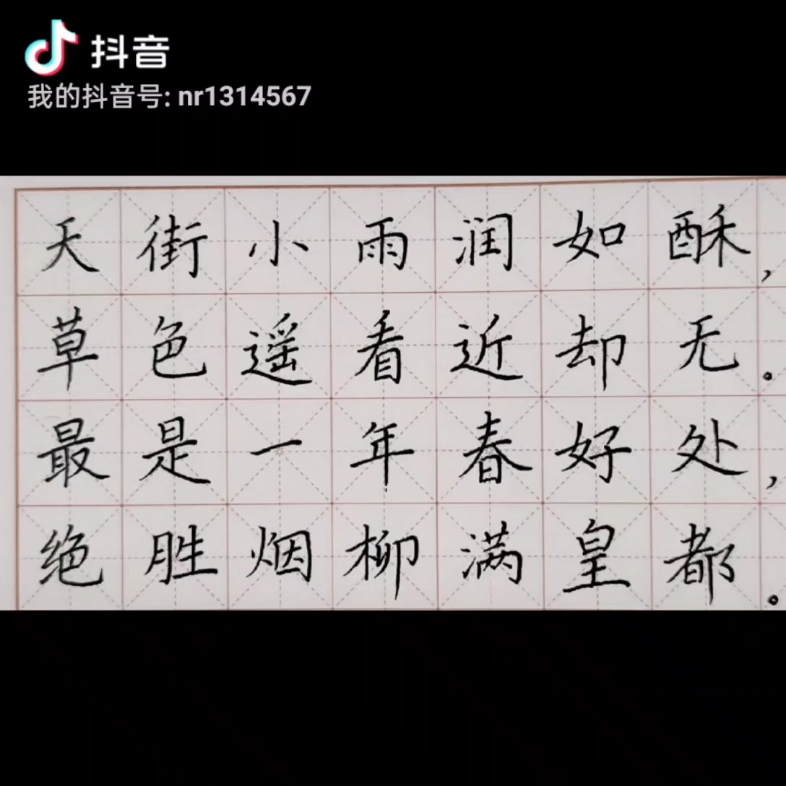 抖音
我的抖音号: nr1314567
天街小雨润如酥,
草色遥看近却无。
最是一年春好处,
绝胜烟柳满皇都。